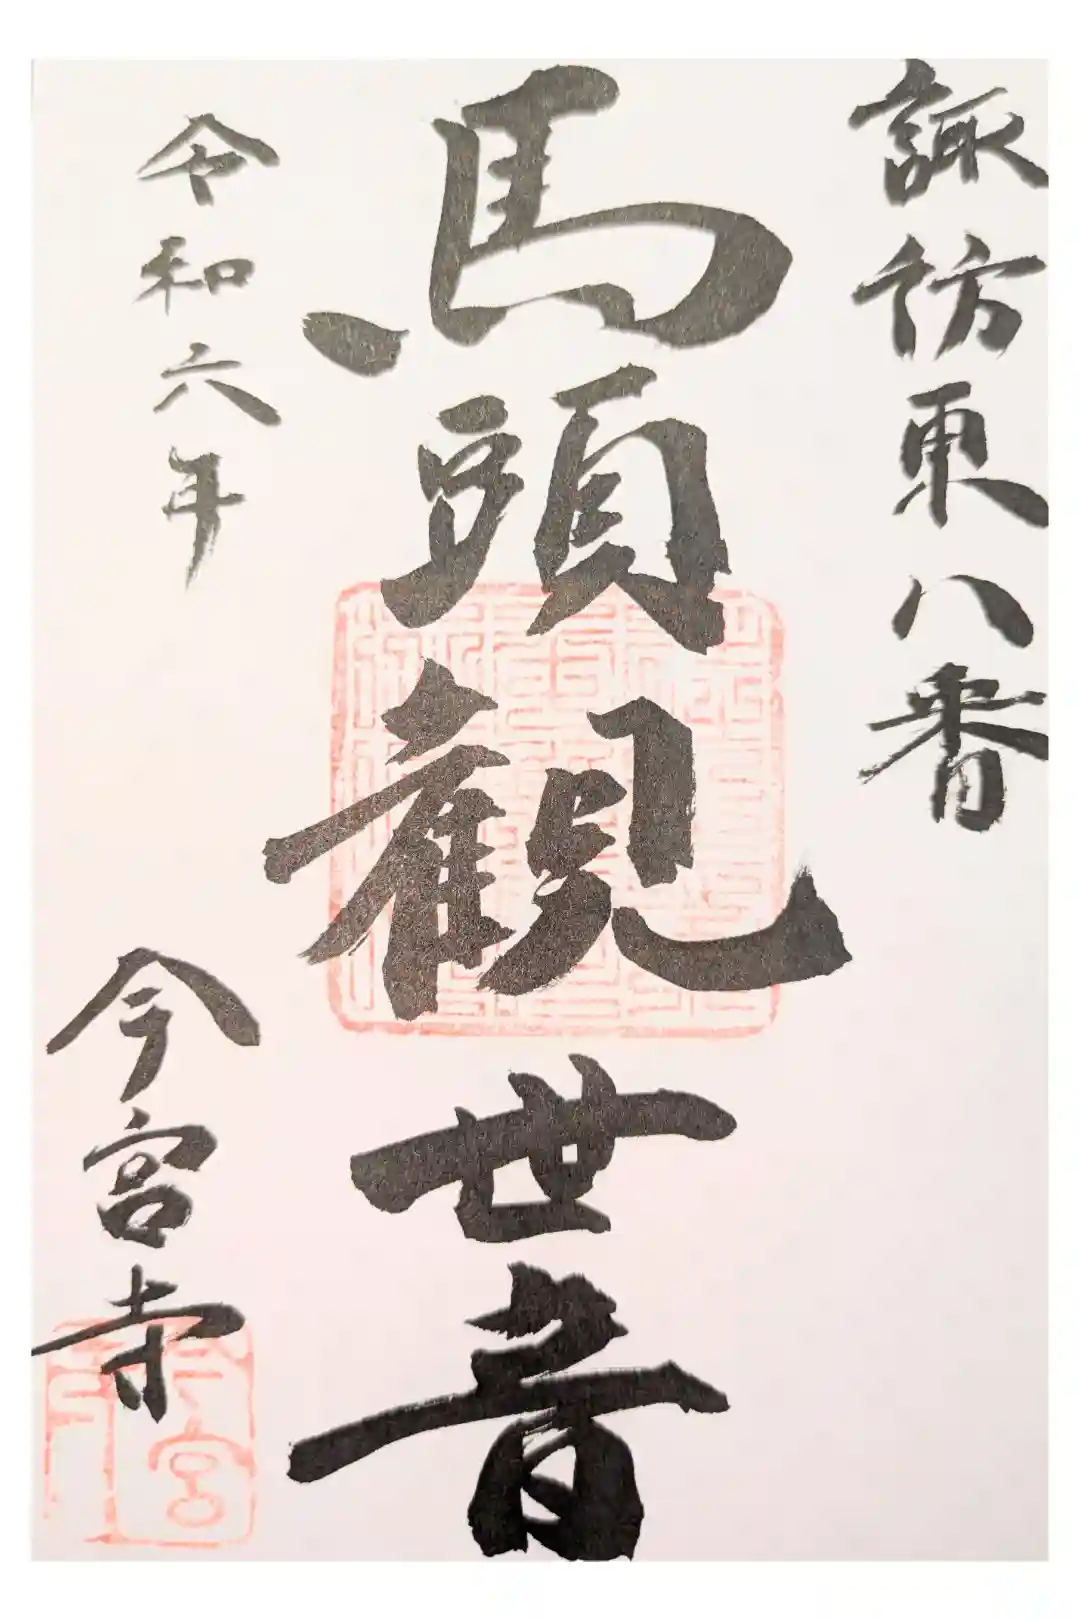 諏訪東八番
馬頭観世音
令和六年
今宮寺